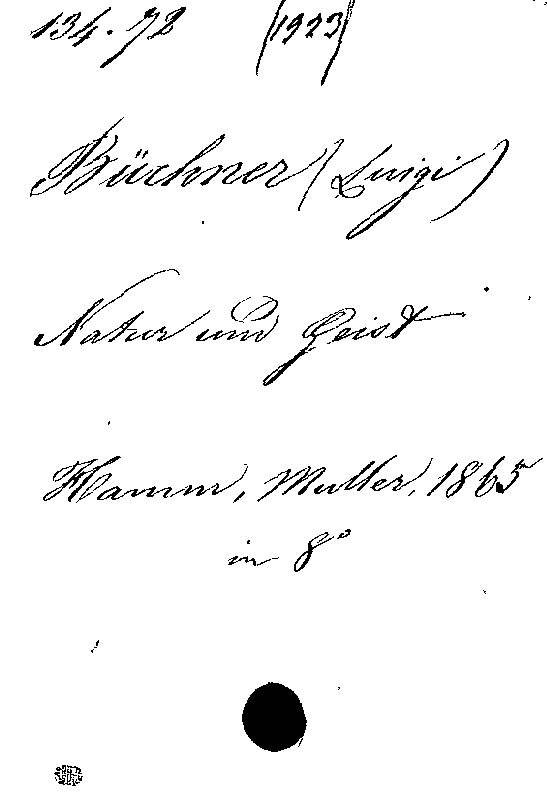 134.72 (1923)
Büchner (Luigi)
Natur und Geist
Hamm, Muller, 1865
in 8°